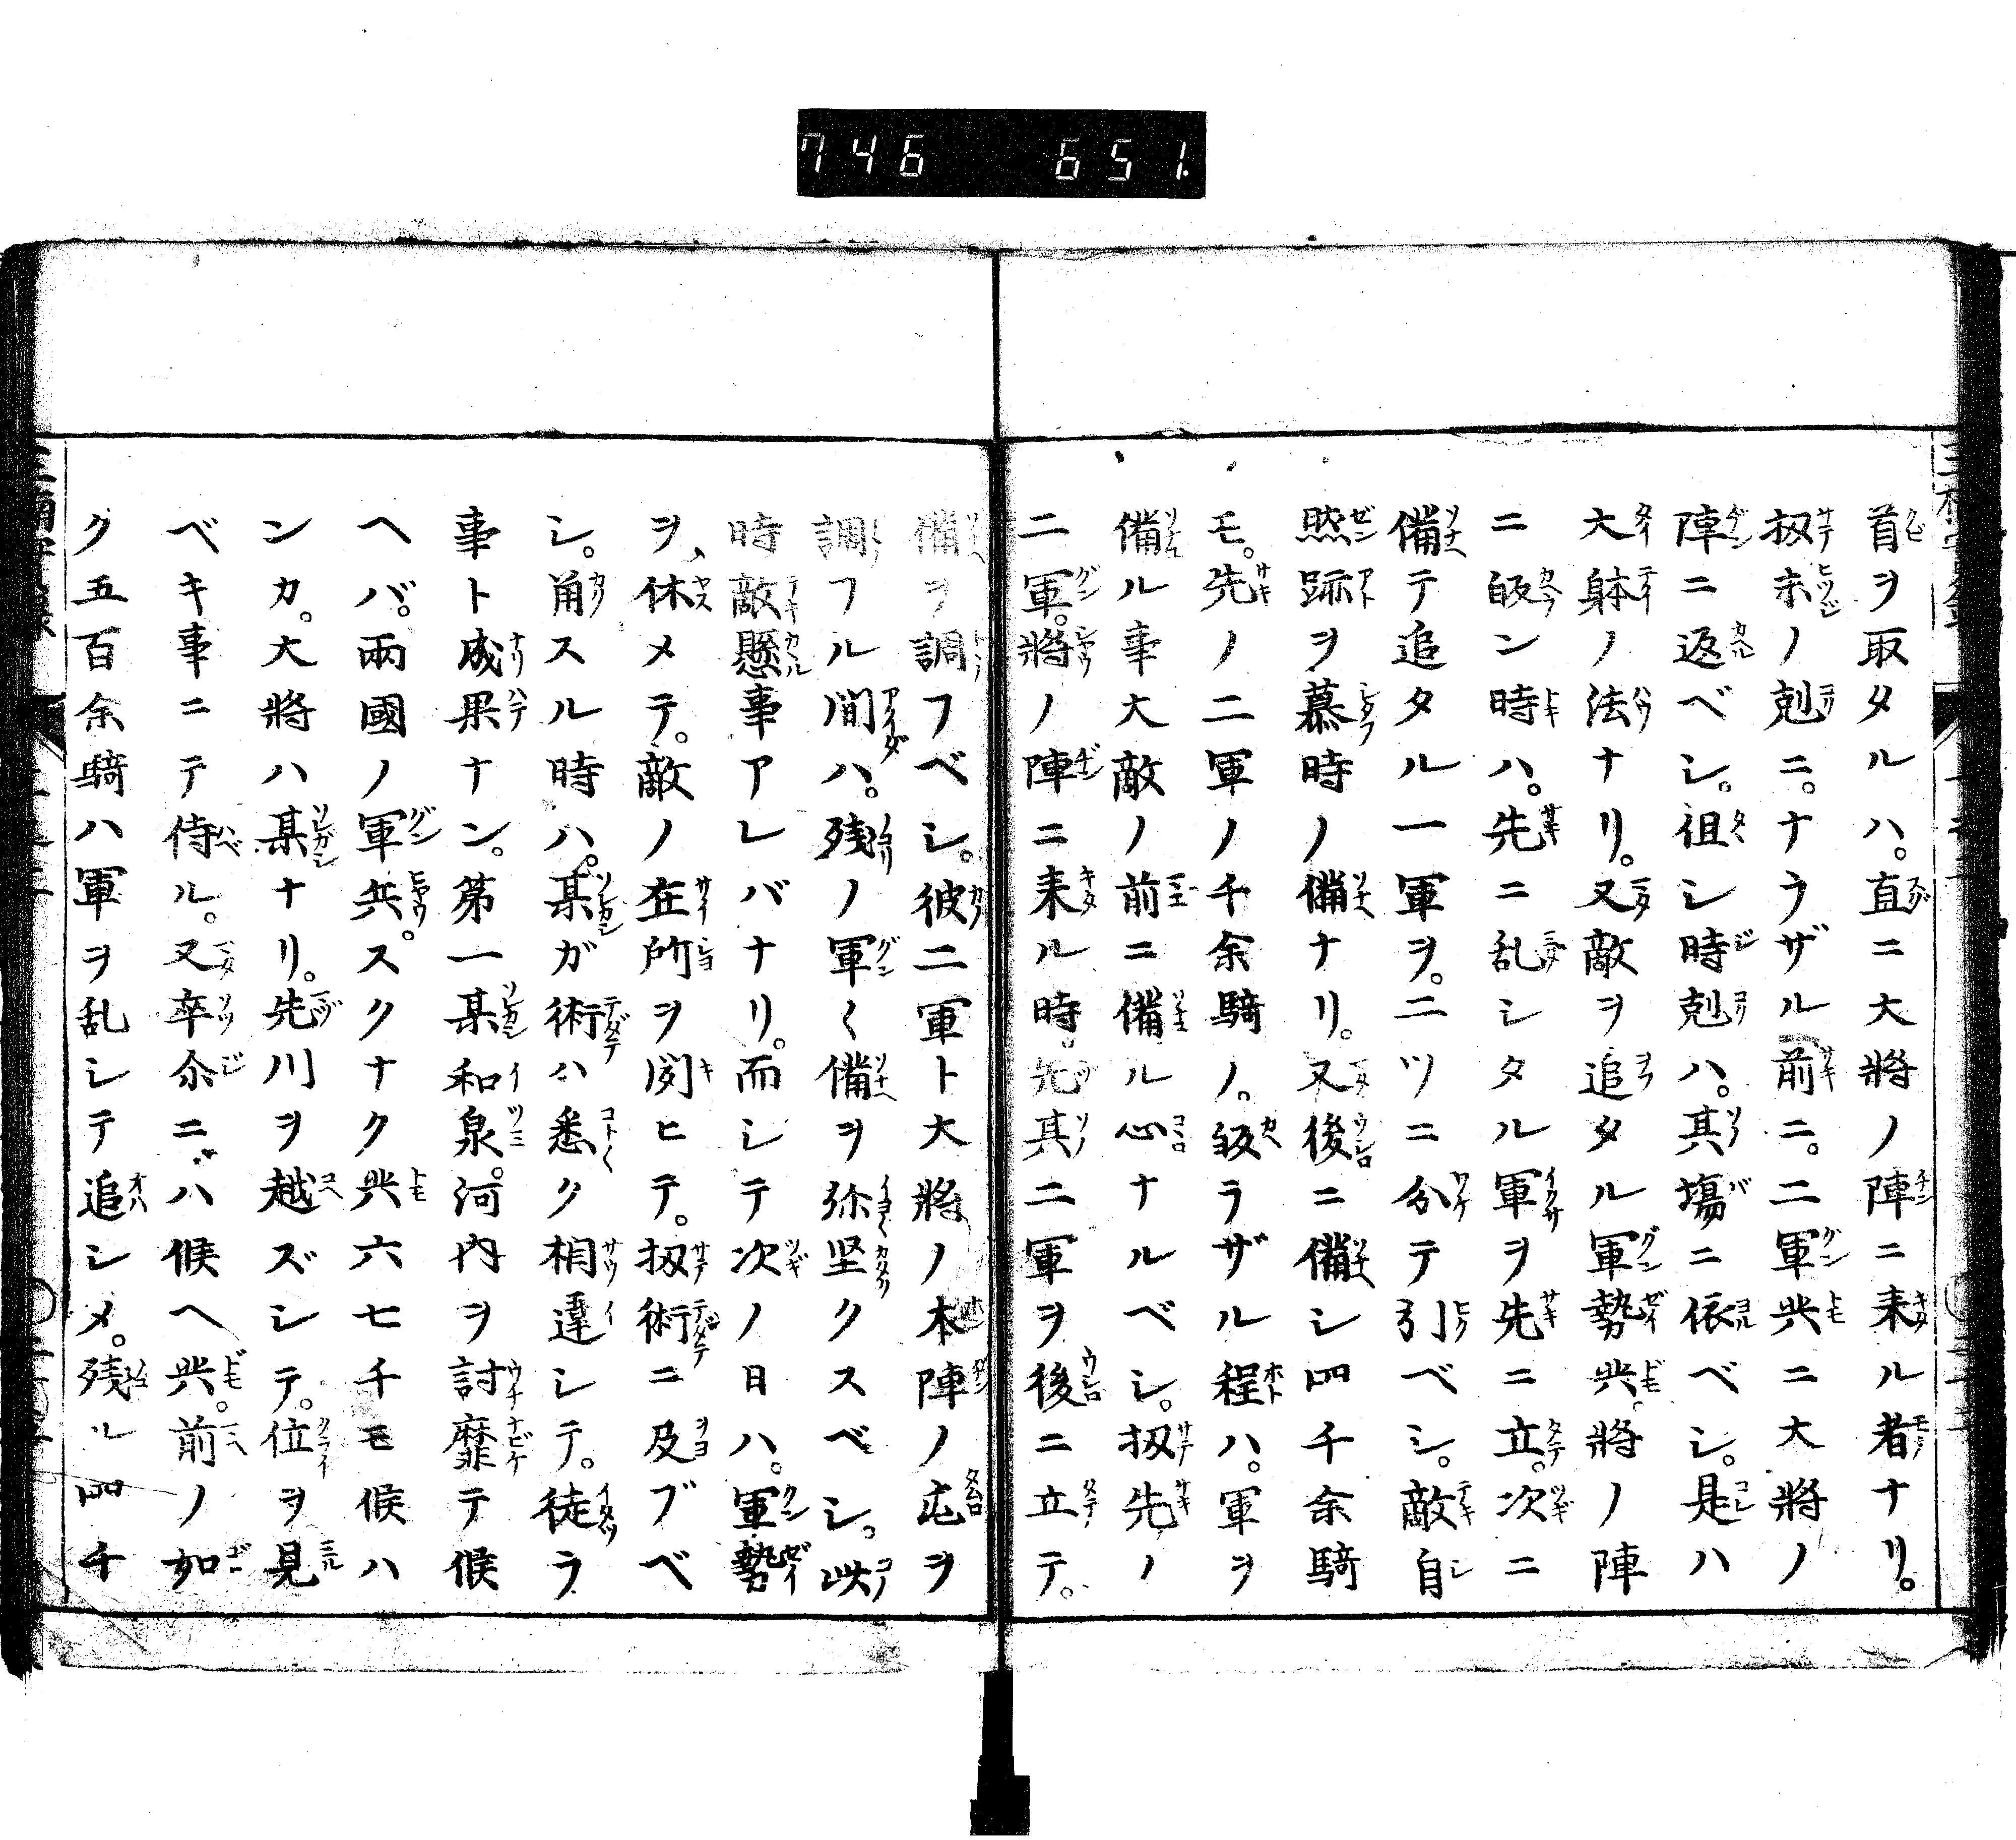 746 651
首ヲ取タルハ。直ニ大將ノ陣ニ来ル者ナリ。
扨未ノ剋ニ。ナラザル前ニ。二軍共ニ大將ノ
陣ニ返ベシ。祖シ時剋ハ。其塲ニ依ベシ。是ハ
大躰ノ法ナリ。又敵ヲ追タル軍勢共。將ノ陣
ニ皈ン時ハ。先ニ乱シタル軍ヲ先ニ立。次ニ
備テ追タル一軍ヲ。二ツニ分テ引ベシ。敵自
然跡ヲ慕時ノ備ナリ。又後ニ備シ四千余騎
モ。先ノ二軍ノ千余騎ノ。皈ラザル程ハ。軍ヲ
備ル事大敵ノ前ニ備ル心ナルベシ。扨先ノ
二軍。將ノ陣ニ来ル時。先其二軍ヲ後ニ立テ。
備ヲ調フベシ。彼二軍ト大將ノ本陣ノ屯ヲ
調フル間ハ。残ノ軍〱備ヲ弥坚クスベシ。此
時敵懸事アレバナリ。而シテ次ノ日ハ。軍勢
ヲ、休メテ。敵ノ在所ヲ聞ヒテ。扨術ニ及ブベ
シ。角スル時ハ。某ガ術ハ悉ク相違シテ。徒ラ
事ト成果ナン。第一某和泉。河内ヲ討靡テ候
ヘバ。兩國ノ軍兵。スクナク共六七千モ候ハ
ンカ。大將ハ某ナリ。先川ヲ越ズシテ。位ヲ見
ベキ事ニテ侍ル。又卒尓ニバハ候ヘ共。前ノ如
ク五百余騎ハ軍ヲ乱シテ追シメ。残ル四千